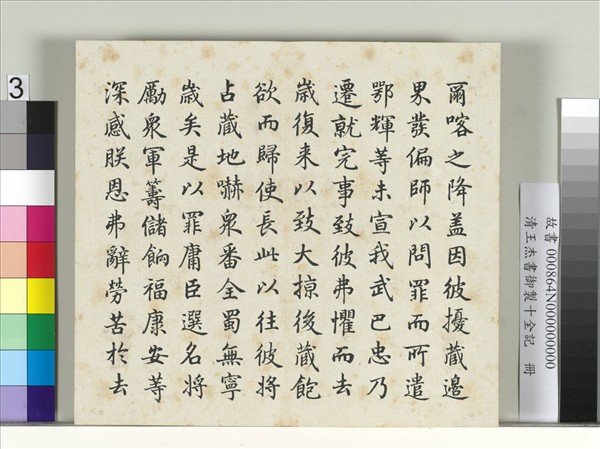 爾喀之降盖因彼擾藏邊
界發偏師以問罪而所遣
鄂輝等未宣我武巴忠乃
遷就完事致彼弗懼而去
歲復来以致大掠後藏飽
欲而歸使長此以往彼將
占藏地嚇衆番全蜀無寧
歲矣是以罪庸臣選名將
勵衆軍籌儲餉福康安等
深感朕恩弗辭勞苦於去
故書 000864N000000000
清王杰書御製十全記 冊
3